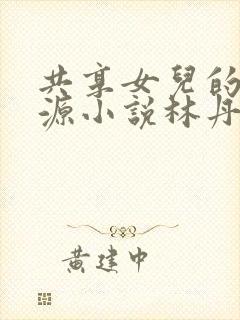 共享女兒的
源小說林丹
黃建中